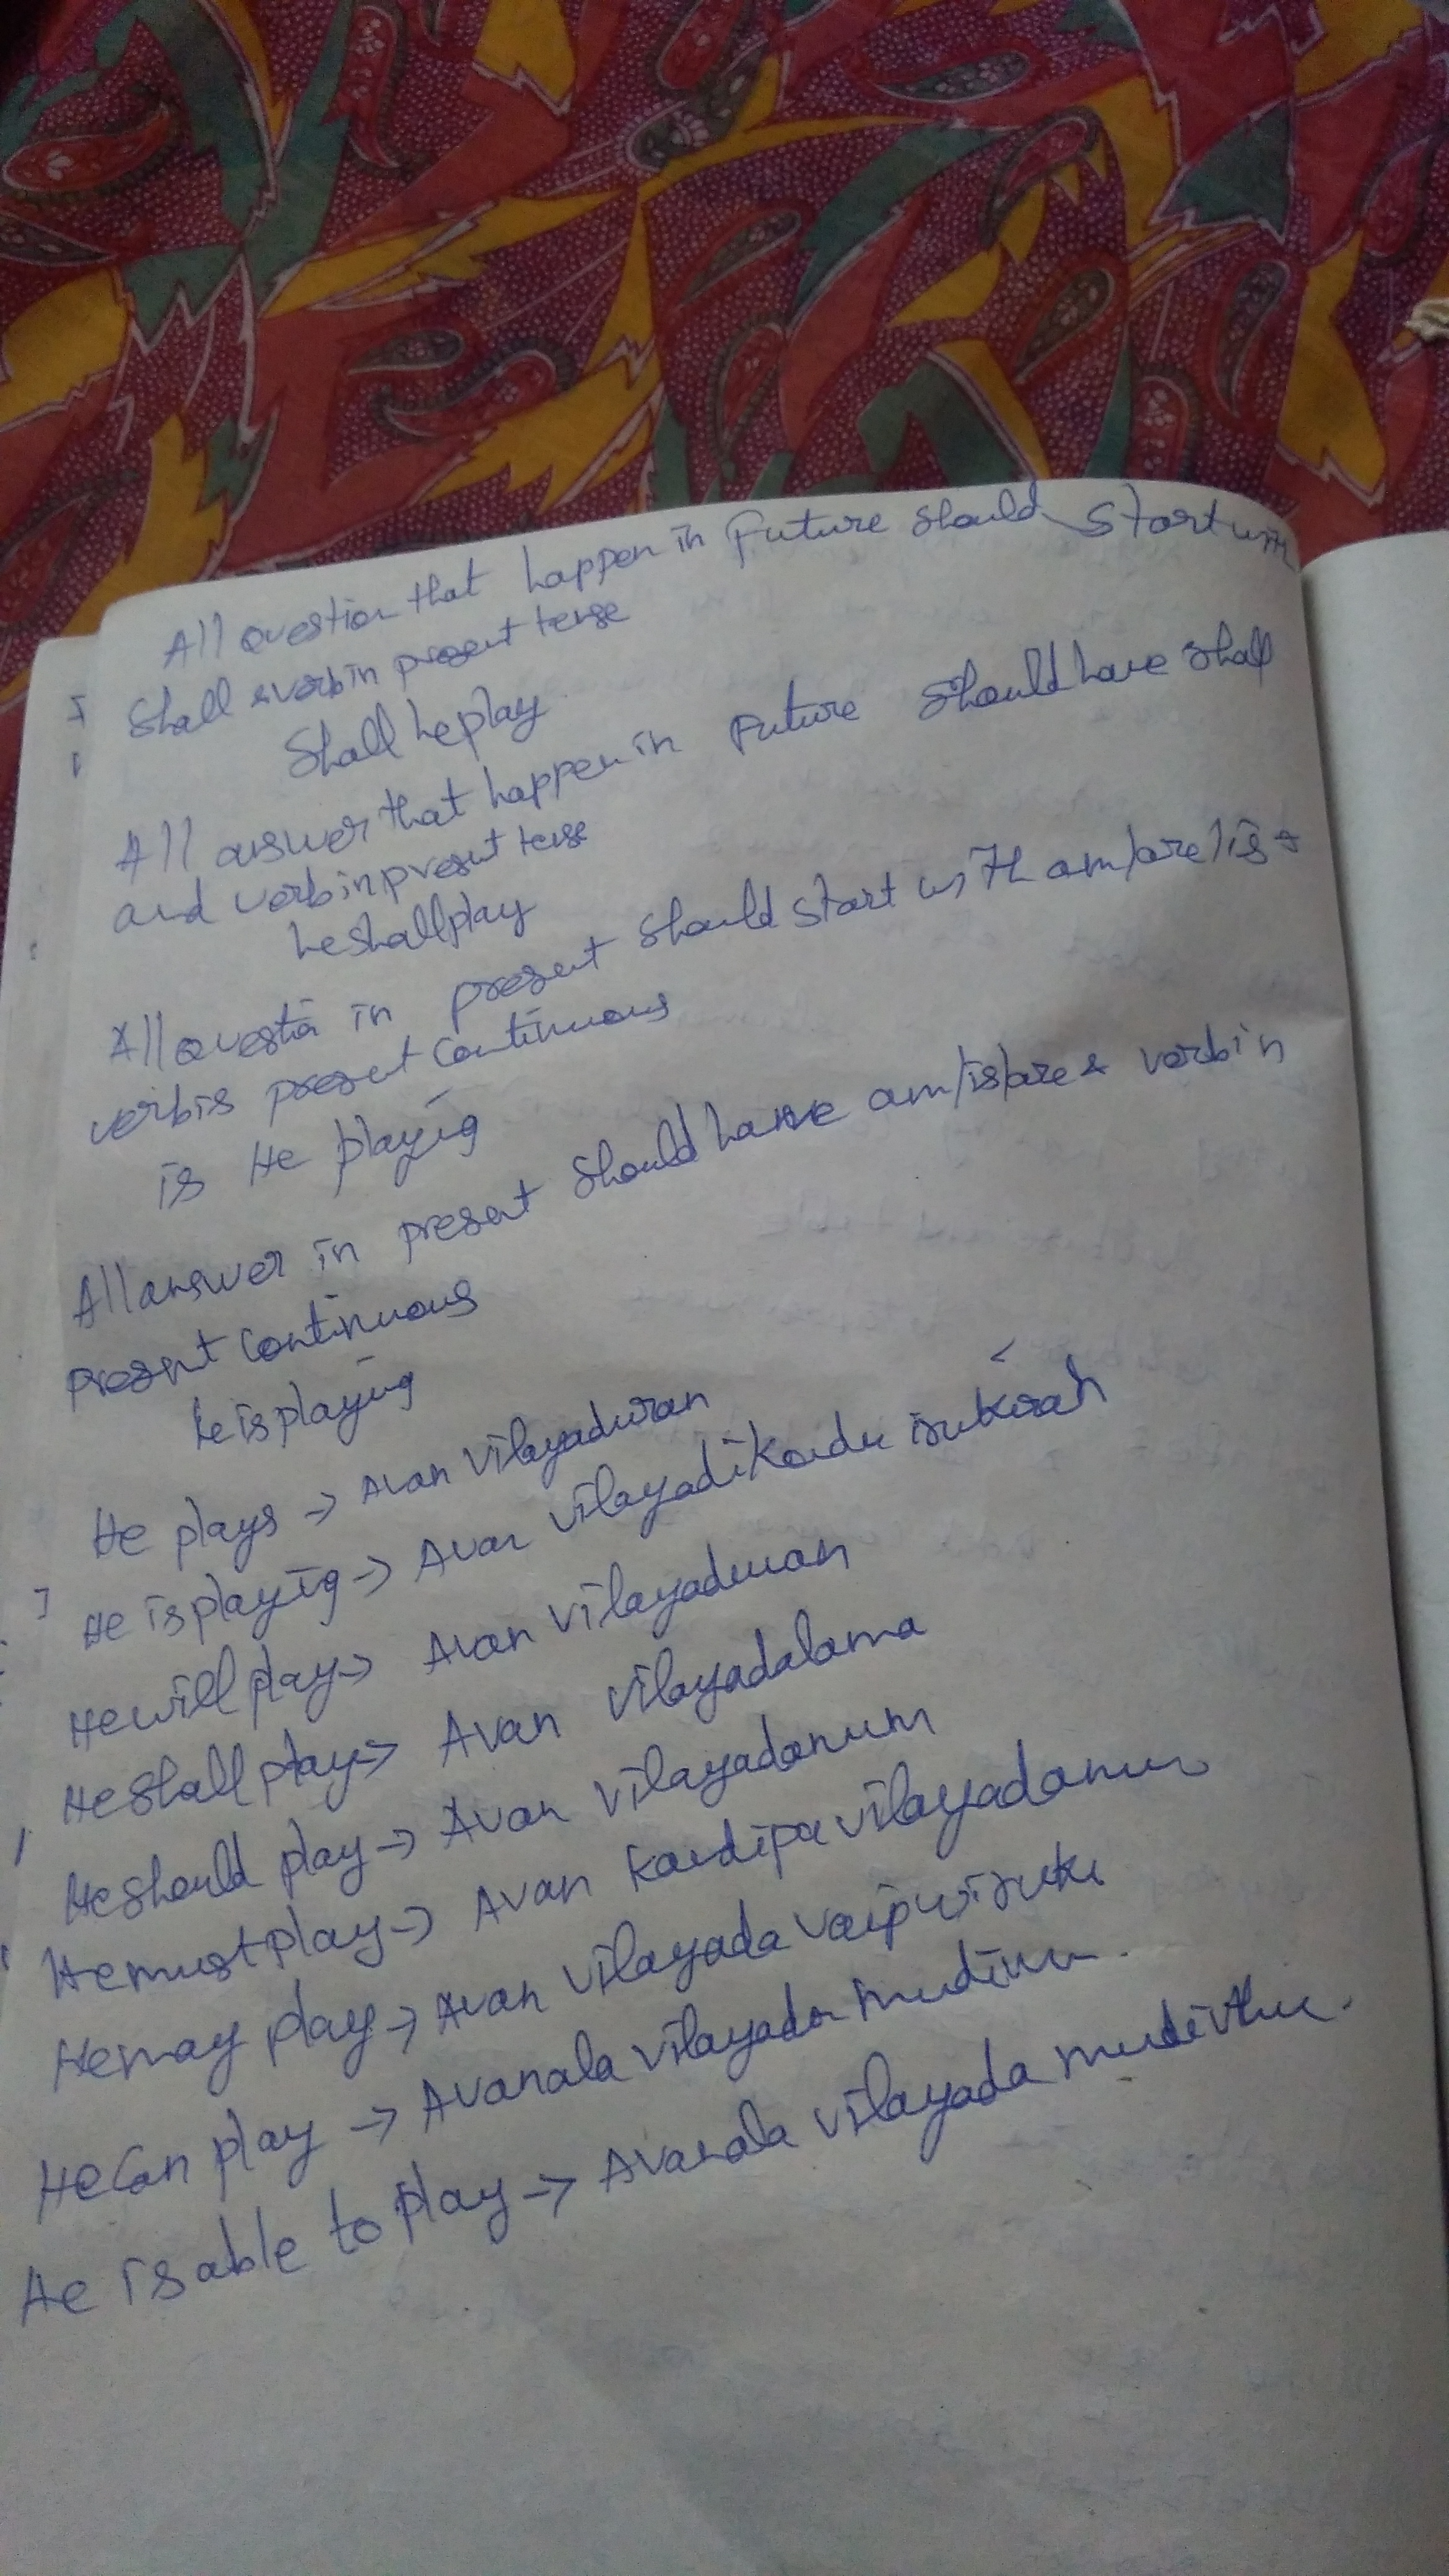 All question that happen in Future should start with
Shall & verb in present tense
Shall he play
All answer that happen in Future should have shall
and verb in present tense
he shall play
All questin in present should start with am/are/is &
verb is present continuous
is He playing
All answer in present should have am/is/are & verb in
present continuous
he is playing
He plays → Avan Vilayaduran
He is playing → Avan Vilayadikondu irukirah
He will play → Avan Vilayaduvan
He shall play → Avan Vilayadalama
He should play → Avan Vilayadanum
He must play → Avan Kandipa vilayadanum
He may play → Avan Vilayada vaipu iruku
He Can play → Avanala vilayada mudium.
He is able to play → Avanala vilayada mudiuthu.